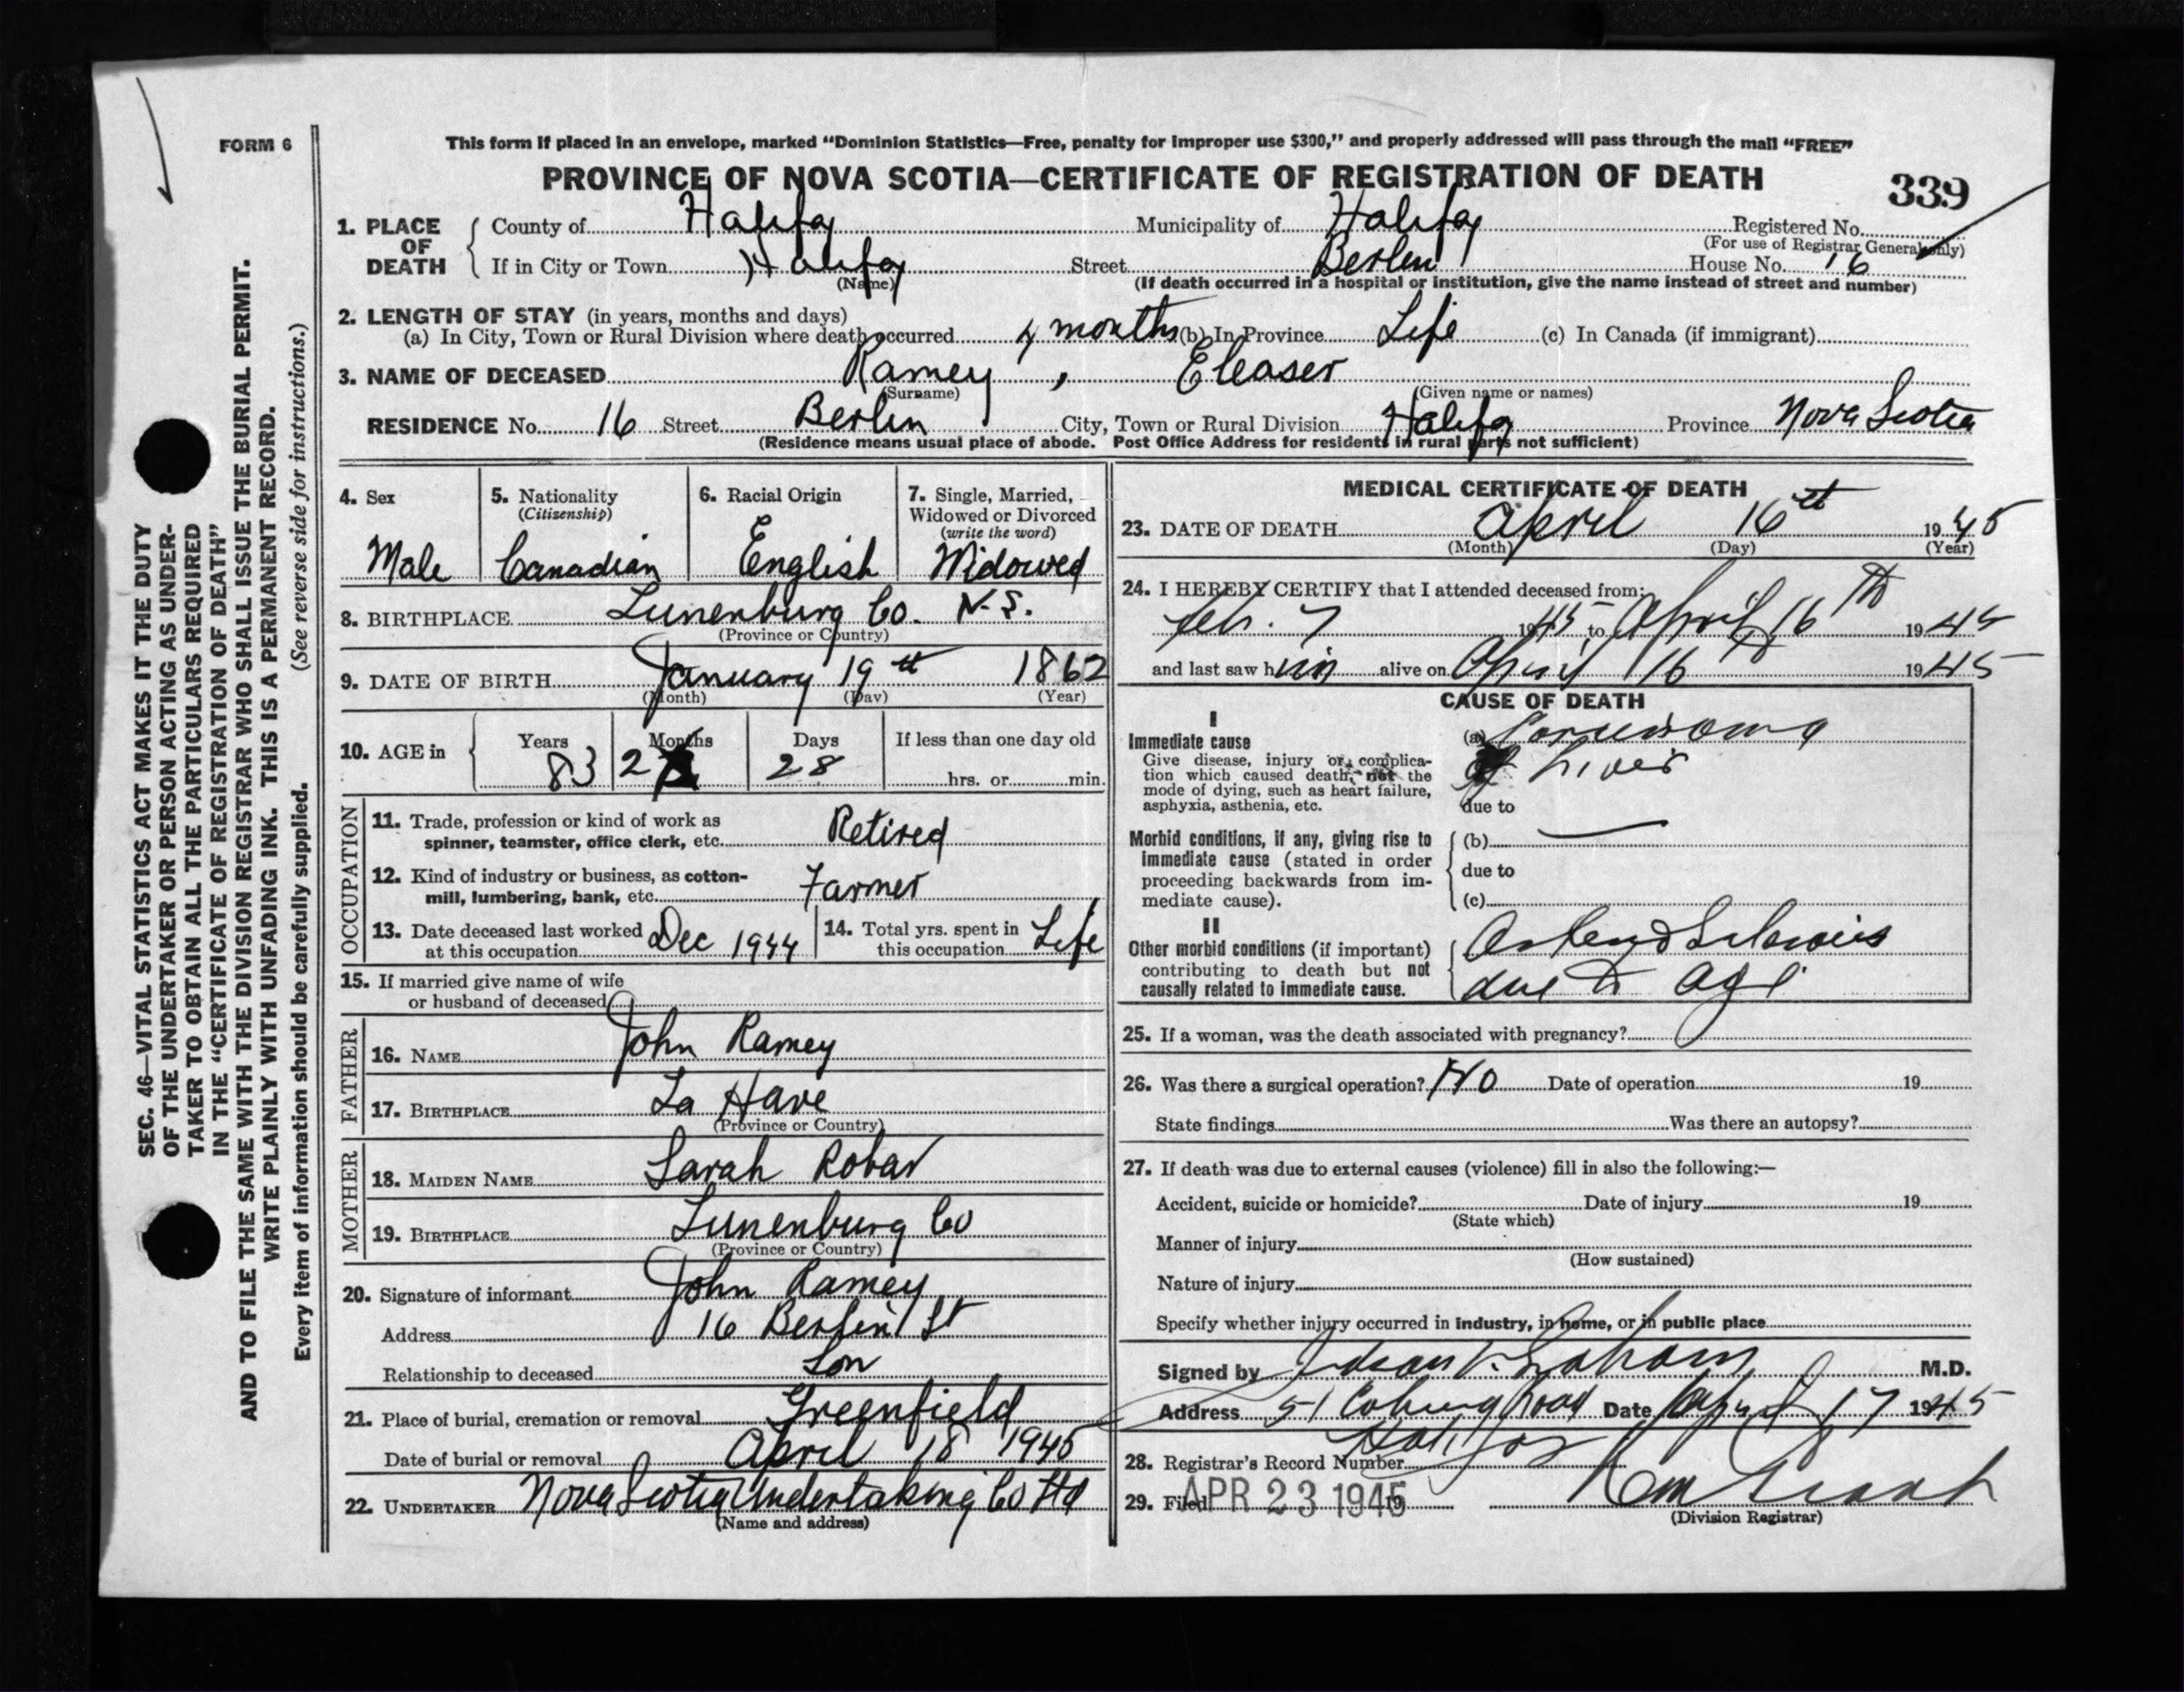 FORM 6
This form if placed in an envelope, marked "Dominion Statistics—Free, penalty for improper use $300," and properly addressed will pass through the mail "FREE"
PROVINCE OF NOVA SCOTIA—CERTIFICATE OF REGISTRATION OF DEATH
339
1. PLACE OF DEATH
County of Halifax Municipality of Halifax Registered No.
(For use of Registrar General only)
If in City or Town Halifax Street Berlin House No. 16
(Name) (If death occurred in a hospital or institution, give the name instead of street and number)
2. LENGTH OF STAY (in years, months and days)
(a) In City, Town or Rural Division where death occurred 4 months (b) In Province Life (c) In Canada (if immigrant)
3. NAME OF DECEASED Ramey, Eleaser
(Surname) (Given name or names)
RESIDENCE No. 16 Street Berlin City, Town or Rural Division Halifax Province Nova Scotia
(Residence means usual place of abode. Post Office Address for residents in rural parts not sufficient)
4. Sex
Male
5. Nationality
(Citizenship)
Canadian
6. Racial Origin
English
7. Single, Married,
Widowed or Divorced
(write the word)
Widowed
8. BIRTHPLACE Lunenburg Co. N.S.
(Province or Country)
9. DATE OF BIRTH January 19th 1862
(Month) (Day) (Year)
10. AGE in
Years Months Days If less than one day old
83 2 28 hrs. or min.
OCCUPATION
11. Trade, profession or kind of work as
spinner, teamster, office clerk, etc. Retired
12. Kind of industry or business, as cotton-
mill, lumbering, bank, etc. Farmer
13. Date deceased last worked
at this occupation Dec 1944
14. Total yrs. spent in
this occupation Life
15. If married give name of wife
or husband of deceased
FATHER
16. NAME John Ramey
17. BIRTHPLACE La Have
(Province or Country)
MOTHER
18. MAIDEN NAME Sarah Robar
19. BIRTHPLACE Lunenburg Co
(Province or Country)
20. Signature of informant John Ramey
Address 16 Berlin St
Relationship to deceased Son
21. Place of burial, cremation or removal Greenfield
Date of burial or removal April 18 1945
22. UNDERTAKER Nova Scotia Undertaking Co Ltd
(Name and address)
MEDICAL CERTIFICATE OF DEATH
23. DATE OF DEATH April 16th 1945
(Month) (Day) (Year)
24. I HEREBY CERTIFY that I attended deceased from:
Feb. 7 1945 to April 16th 1945
and last saw him alive on April 16 1945
CAUSE OF DEATH
I
Immediate cause
Give disease, injury or complica-
tion which caused death, not the
mode of dying, such as heart failure,
asphyxia, asthenia, etc.
(a) Carcinoma
of Liver
due to
Morbid conditions, if any, giving rise to
immediate cause (stated in order
proceeding backwards from im-
mediate cause).
(b) —
due to
(c)
II
Other morbid conditions (if important)
contributing to death but not
causally related to immediate cause.
due to age
25. If a woman, was the death associated with pregnancy?
26. Was there a surgical operation? No Date of operation 19
State findings Was there an autopsy?
27. If death was due to external causes (violence) fill in also the following:—
Accident, suicide or homicide? Date of injury 19
(State which)
Manner of injury
(How sustained)
Nature of injury
Specify whether injury occurred in industry, in home, or in public place
Signed by Judson V. Graham M.D.
Address 51 Coburg Road Date April 17 1945
Halifax
28. Registrar's Record Number
29. Filed APR 23 1945 19
(Division Registrar)
SEC. 46—VITAL STATISTICS ACT MAKES IT THE DUTY
OF THE UNDERTAKER OR PERSON ACTING AS UNDER-
TAKER TO OBTAIN ALL THE PARTICULARS REQUIRED
IN THE "CERTIFICATE OF REGISTRATION OF DEATH"
AND TO FILE THE SAME WITH THE DIVISION REGISTRAR WHO SHALL ISSUE THE BURIAL PERMIT.
WRITE PLAINLY WITH UNFADING INK. THIS IS A PERMANENT RECORD.
Every item of information should be carefully supplied. (See reverse side for instructions.)